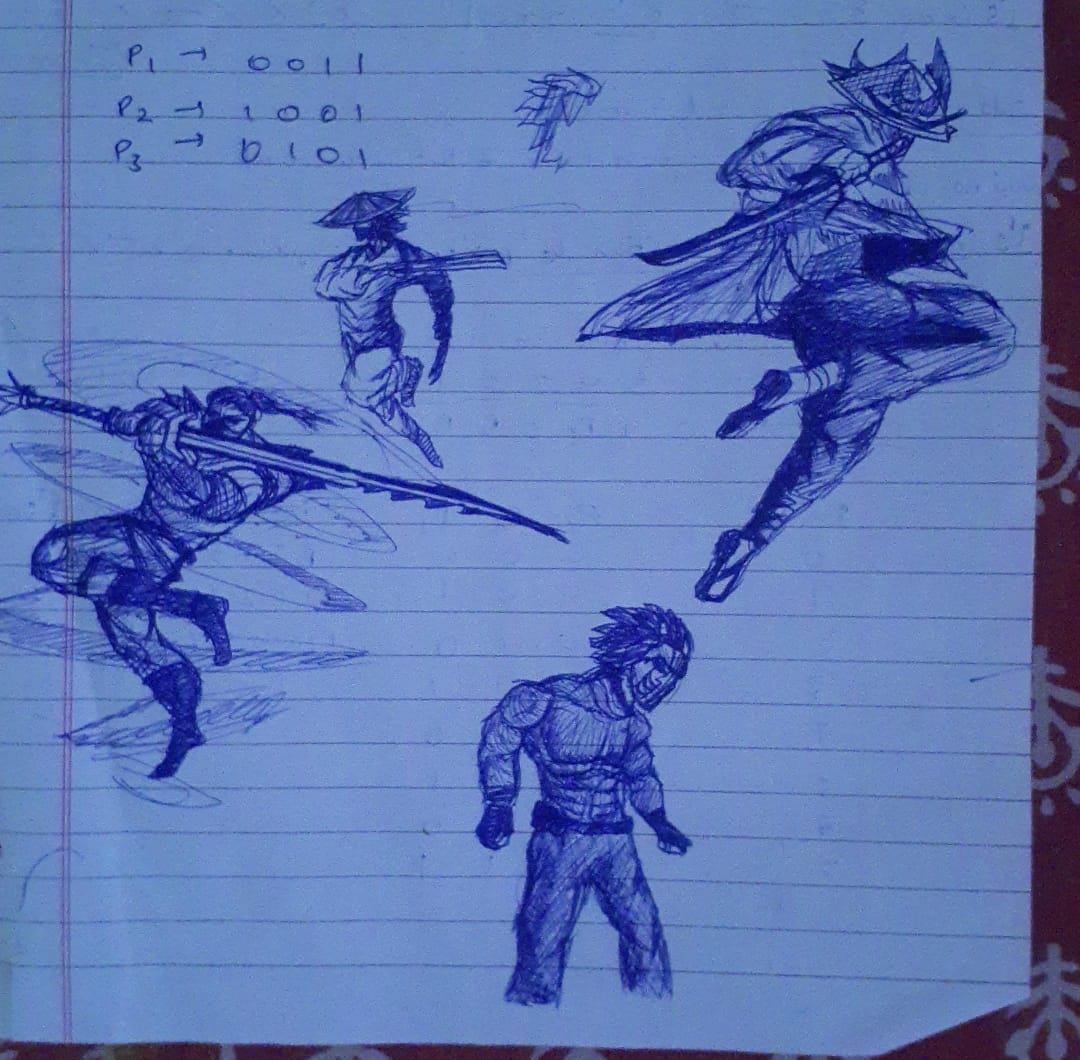 P1 → 0011
P2 → 1001
P3 → 0101